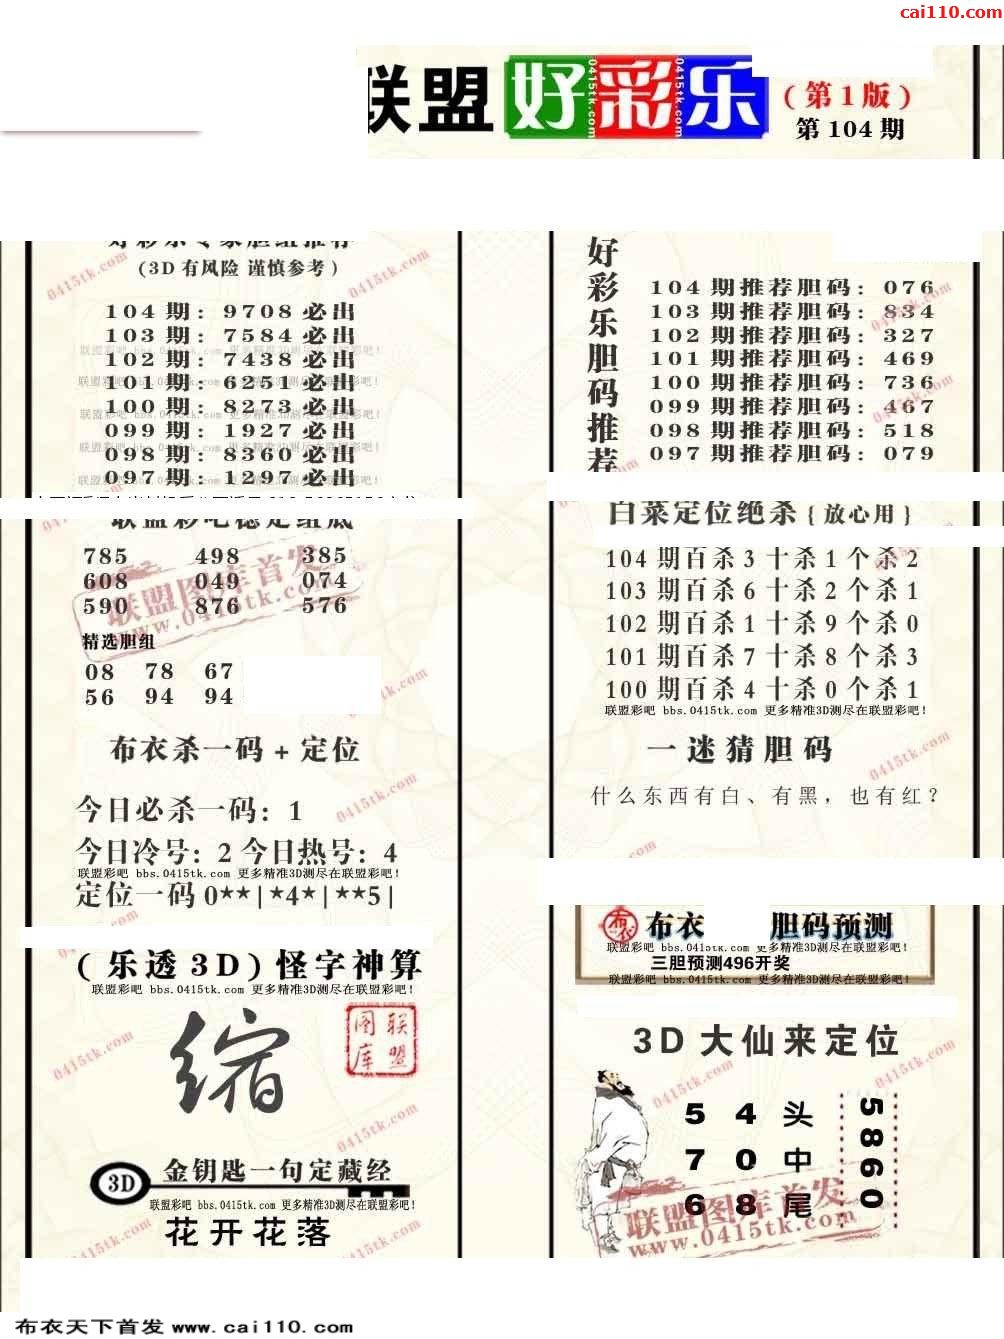 cai110.com
联盟 好彩乐
(第1版)
第104期
(3D有风险 谨慎参考)
104期: 9708必出
103期: 7584必出
102期: 7438必出
101期: 6251必出
100期: 8273必出
099期: 1927必出
098期: 8360必出
097期: 1297必出
785 498 385
608 049 074
590 876 576
精选胆组
08 78 67
56 94 94
布衣杀一码+定位
今日必杀一码: 1
今日冷号: 2 今日热号: 4
联盟彩吧 bbs.0415tk.com 更多精准3D测尽在联盟彩吧!
定位一码0**|*4*|**5|
(乐透3D)怪字神算
联盟彩吧 bbs.0415tk.com 更多精准3D测尽在联盟彩吧!
缩
联盟图库
3D 金钥匙一句定藏经
联盟彩吧 bbs.0415tk.com 更多精准3D测尽在联盟彩吧!
花开花落
好彩乐胆码推荐
104期推荐胆码: 076
103期推荐胆码: 834
102期推荐胆码: 327
101期推荐胆码: 469
100期推荐胆码: 736
099期推荐胆码: 467
098期推荐胆码: 518
097期推荐胆码: 079
白菜定位绝杀{放心用}
104期百杀3十杀1个杀2
103期百杀6十杀2个杀1
102期百杀1十杀9个杀0
101期百杀7十杀8个杀3
100期百杀4十杀0个杀1
联盟彩吧 bbs.0415tk.com 更多精准3D测尽在联盟彩吧!
一迷猜胆码
什么东西有白、有黑，也有红?
布衣 布衣 胆码预测
联盟彩吧 bbs.0415tk.com 更多精准3D测尽在联盟彩吧!
三胆预测496开奖
联盟彩吧 bbs.0415tk.com 更多精准3D测尽在联盟彩吧!
3D大仙来定位
5 4 头
7 0 中
6 8 尾
5860
联盟图库首发
www.0415tk.com
布衣天下首发 www.cai110.com